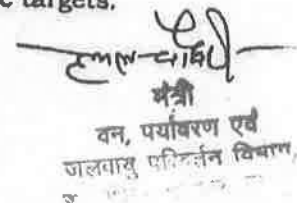 c targets.
मंत्री
वन, पर्यावरण एवं
जलवायु परिवर्तन विभाग,